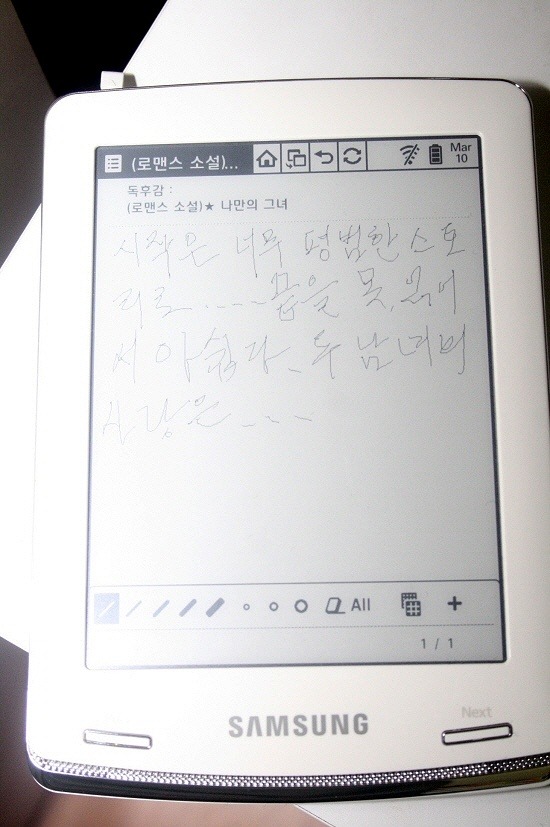 (로맨스 소설)...
Mar
10
독후감 :
(로맨스 소설)★ 나만의 그녀
시작은 너무 평범한 스토
리로.... 끝을 못, 봐
서 아쉽다. 두 남녀의
사랑은 ...
All
1 / 1
SAMSUNG
Next